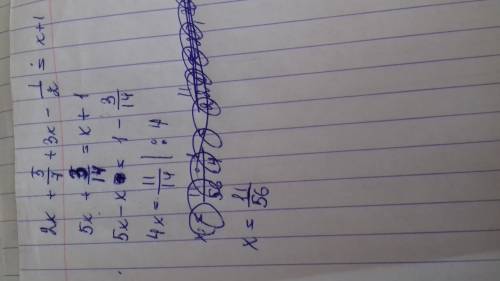 2x + 5/7 + 3x - 1/2 = x+1
5x + 3/14 = x + 1
5x - x = 1 - 3/14
4x = 11/14 | : 4
x = 11/56